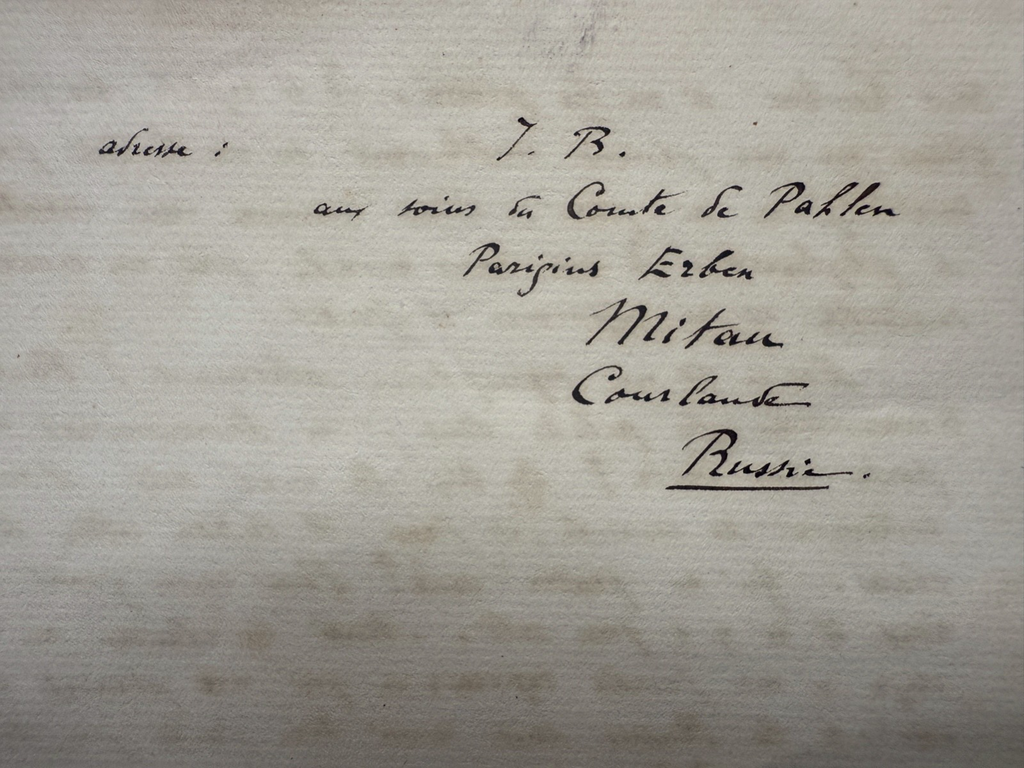 adresse : J. B.
aux soins du Comte de Pahlen
Parigius Erben
Mitau
Courlande
Russie.